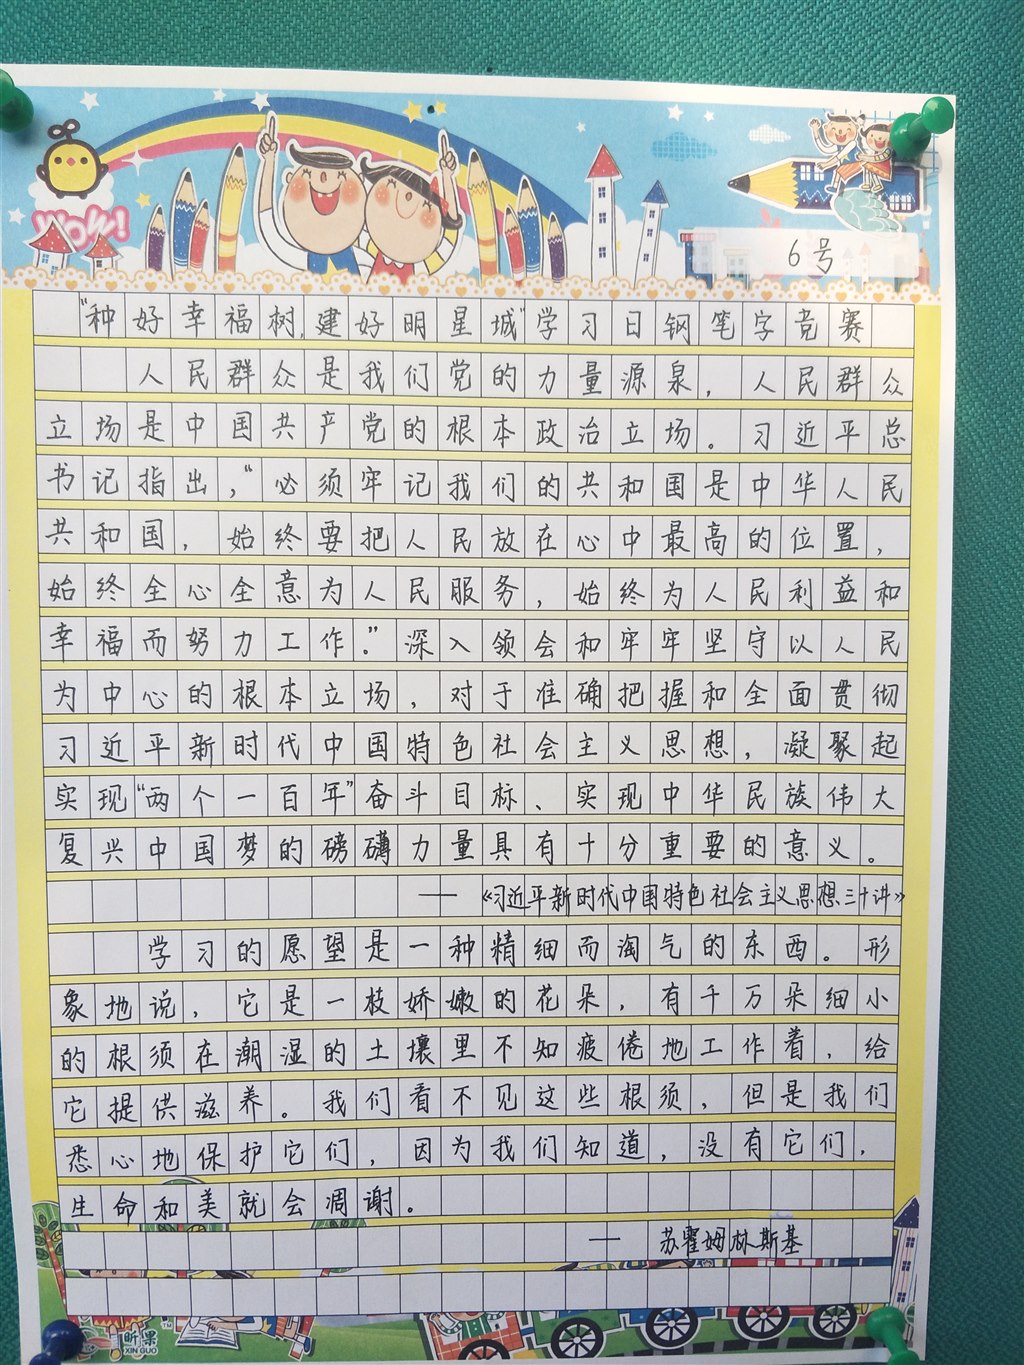 WOW!
6号
“种好幸福树,建好明星城”学习日钢笔字竞赛
人民群众是我们党的力量源泉，人民群众
立场是中国共产党的根本政治立场。习近平总
书记指出，“必须牢记我们的共和国是中华人民
共和国，始终要把人民放在心中最高的位置，
始终全心全意为人民服务，始终为人民利益和
幸福而努力工作。”深入领会和牢牢坚守以人民
为中心的根本立场，对于准确把握和全面贯彻
习近平新时代中国特色社会主义思想，凝聚起
实现“两个一百年”奋斗目标、实现中华民族伟大
复兴中国梦的磅礴力量具有十分重要的意义。
——《习近平新时代中国特色社会主义思想三十讲》
学习的愿望是一种精细而淘气的东西。形
象地说，它是一枝娇嫩的花朵，有千万朵细小
的根须在潮湿的土壤里不知疲倦地工作着，给
它提供滋养。我们看不见这些根须，但是我们
悉心地保护它们，因为我们知道，没有它们，
生命和美就会凋谢。
—— 苏霍姆林斯基
昕果
XIN GUO
TM